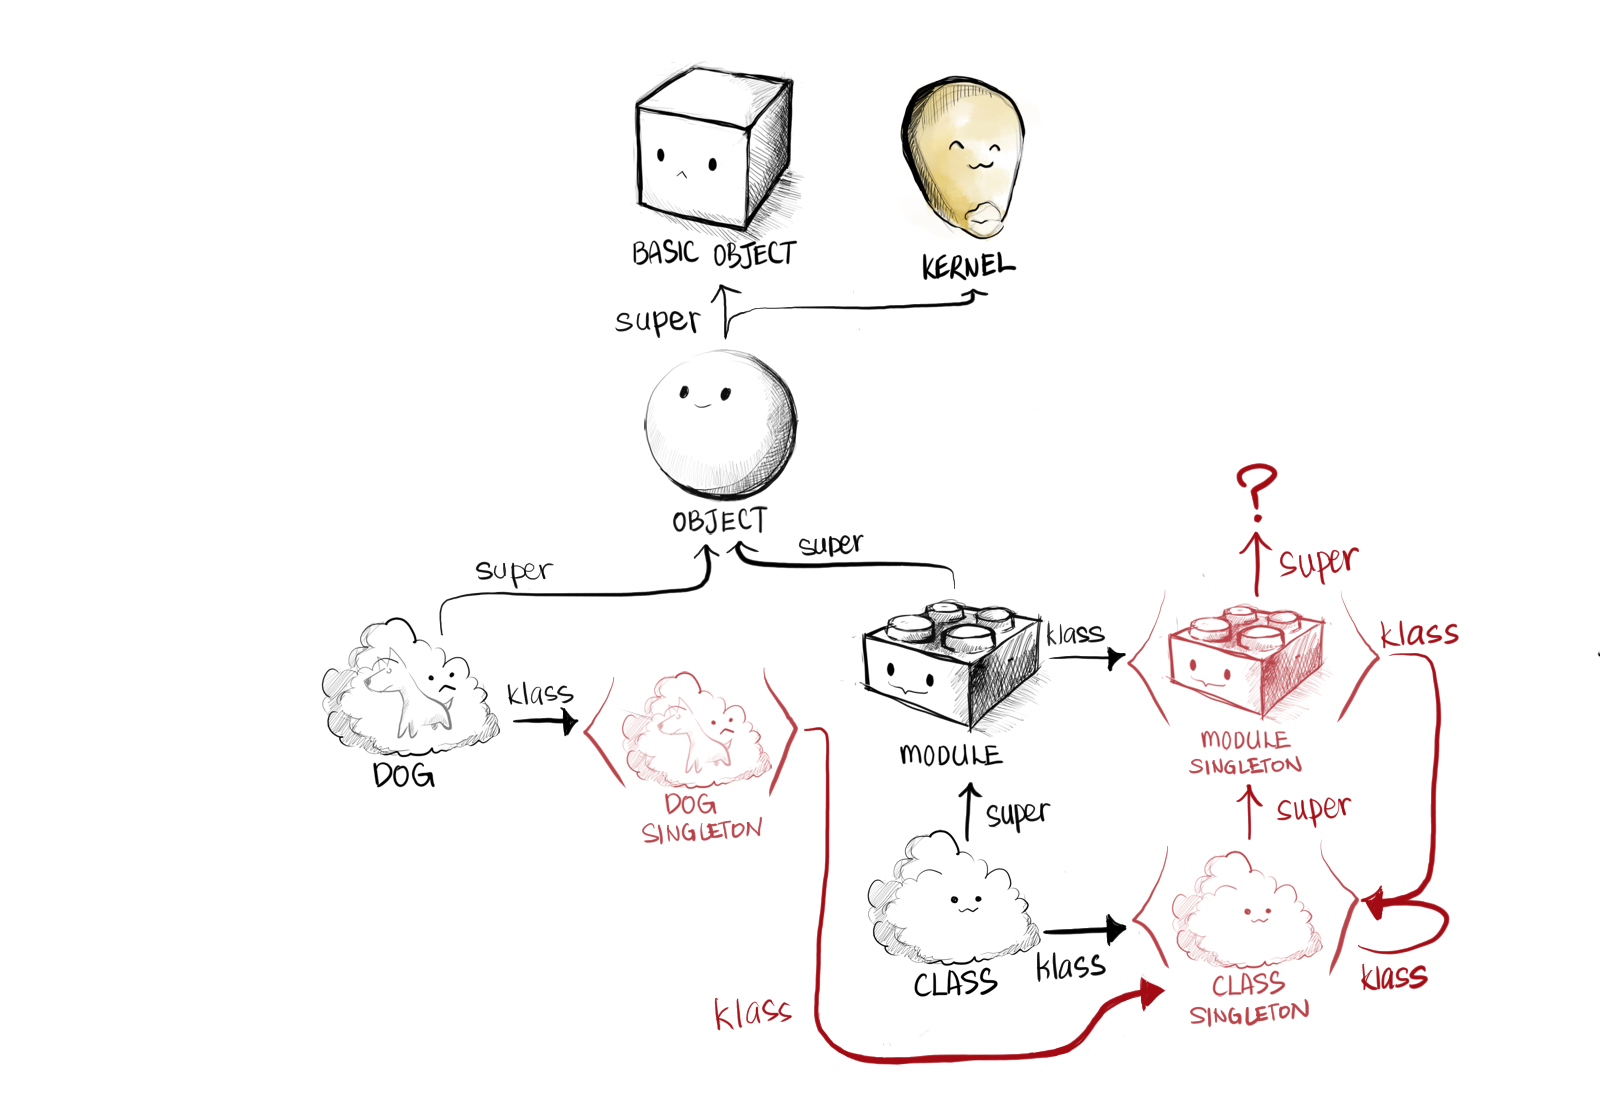 BASIC OBJECT
KERNEL
super
OBJECT
super
super
?
super
klass
klass
klass
DOG
DOG
SINGLETON
MODULE
MODULE
SINGLETON
super
super
CLASS
klass
klass
CLASS
SINGLETON
klass